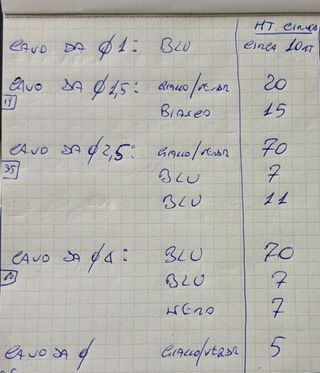 MT. CIRCA
CAVO DA Ø1: BLU CIRCA 10MT
CAVO DA Ø1,5: GIALLO/VERDE 20
BIANCO 15
CAVO DA Ø2,5: GIALLO/VERDE 70
35 BLU 7
BLU 11
CAVO DA Ø4: BLU 70
BLU 7
NERO 7
CAVO DA Ø GIALLO/VERDE 5